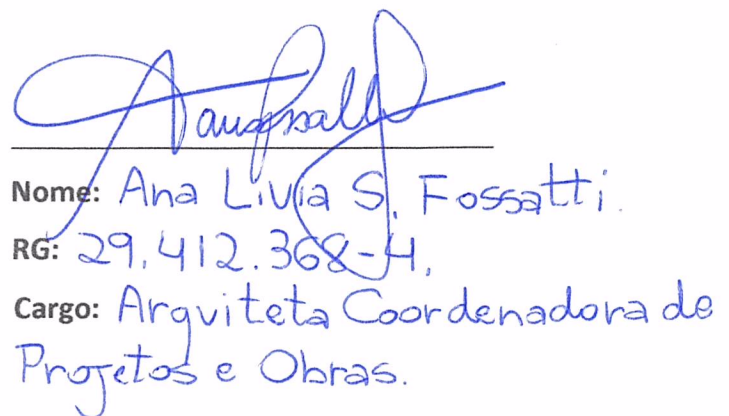 Nome: Ana Livia S. Fossatti.
RG: 29.412.368-4.
Cargo: Arquiteta Coordenadora de
Projetos e Obras.